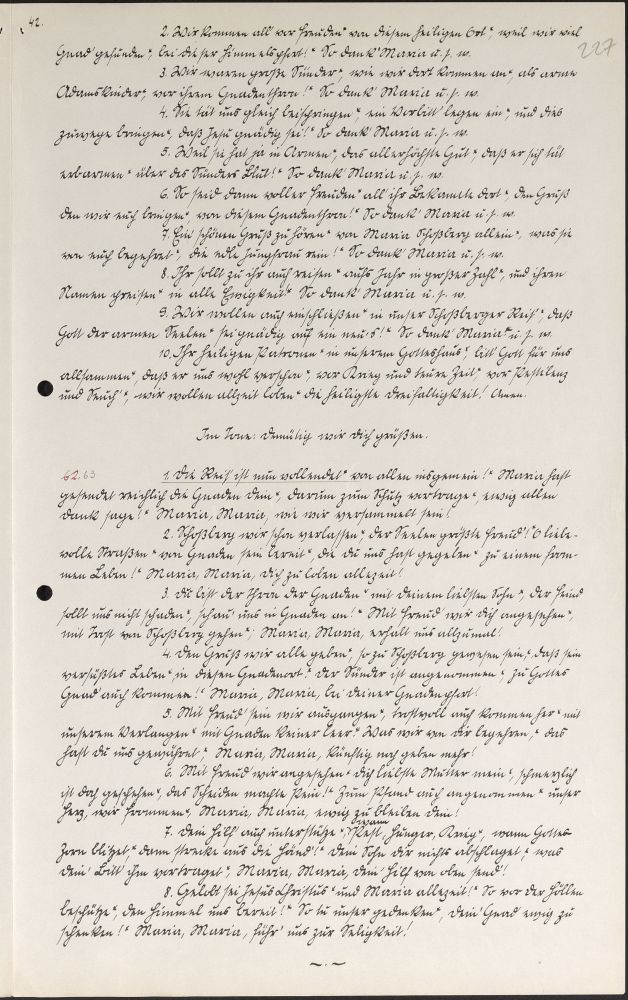 42.
227
2. Wir kommen all' vor Freuden" von diesem heiligen Ort", weil wir viel
Gnad' gefunden", bei dieser Himmelspfort!" So dank' Maria u. s. w.
3. Wir waren große Sünder", wie wir dort kommen an", als arme
Adamskinder", vor ihrem Gnadenthron!" So dank' Maria u. s. w.
4. Sie tät uns gleich beispringen", ein Vorbitt' legen ein", und dies
zuwege bringen", daß Jesu gnädig sei!" So dank' Maria u. s. w.
5. Weil sie hat ja in Armen", das allerhöchste Gut", daß er sich tät
erbarmen" über des Sünders Blut!" So dank' Maria u. s. w.
6. So seid dann voller Freuden" all' ihr Bekannte dort", den Gruß
den wir euch bringen", von diesem Gnadenthron!" So dank' Maria u. s. w.
7. Ein' schönen Gruß zu hören" von Maria Schoßberg allein", was sie
von euch begehret", die edle Jungfrau rein!" So dank' Maria u. s. w.
8. Ihr sollt zu ihr auch reisen" aufs Jahr in großer Zahl", und ihren
Namen preisen" in alle Ewigkeit" So dank' Maria u. s. w.
9. Wir wollen auch einschließen" in unser Schoßberger Reis'", daß
Gott der armen Seelen" sei gnädig auf ein neu's!" So dank' Maria" u. s. w.
10. Ihr heiligen Patronen" in unserem Gotteshaus", bitt' Gott für uns
allsammen", daß er uns wohl verschon", vor Krieg und teure Zeit", vor Pestilenz
und Seuch'", wir wollen allzeit loben" die heiligste Dreifaltigkeit! Amen.
Im Tone: Demütig wir dich grüßen.
62. 63 1. Die Reis' ist nun vollendet" von allen insgemein!" Maria hast
gesendet reichlich die Gnaden dein", darum zum Schutz vertrage", ewig allen
Dank sage!" Maria, Maria, wie wir versammelt sein!
2. Schoßberg wir schon verlassen", der Seelen größte Freud'!" O liebe-
volle Straßen" von Gnaden sein bereit", die du uns hast gegeben" zu einem from-
men Leben!" Maria, Maria, dich zu loben allezeit!
3. Du bist der Thron der Gnaden" mit deinem liebsten Sohn", der Feind
sollt uns nicht schaden", schau' uns in Gnaden an!" Mit Freud' wir dich angesehen",
mit Trost von Schoßberg gehen"; Maria, Maria, erhalt uns allzumal!
4. Den Gruß wir alle geben", so zu Schoßberg gewesen sein", daß sein
versüßtes Leben" in diesen Gnadenort." Der Sünder ist angenommen", zu Gottes
Gnad' auch kommen!" Maria, Maria, bei deiner Gnadenpfort!
5. Mit Freud' sein wir ausgangen", trostvoll auch kommen her" mit
unserem Verlangen" mit Gnaden keiner leer." Was wir von dir begehren", das
hast du uns gewähret", Maria, Maria, künftig noch geben mehr!
6. Mit Freud' wir angesehen" dich liebste Mutter mein", schmerzlich
ist doch geschehen", das Scheiden machte Pein!" Zum Pfand auch angenommen" unser
Herz, wir Frommen", Maria, Maria, ewig zu bleiben dein!
7. Dein Hilf' auch unterstütze", wann Pest, Hunger, Krieg", wann Gottes
Zorn blitzet" dann strecke aus die Händ'!" Dein Sohn dir nichts abschlaget", was
dein' Bitt' ihm vortraget", Maria, Maria, dein' Hilf von oben send'!
8. Gelobt sei Jesus Christus" und Maria allezeit!" So vor der Höllen
beschütze", den Himmel uns bereit!" So tu unser gedenken", dein' Gnad' ewig zu
schenken!" Maria, Maria, führ' uns zur Seligkeit!